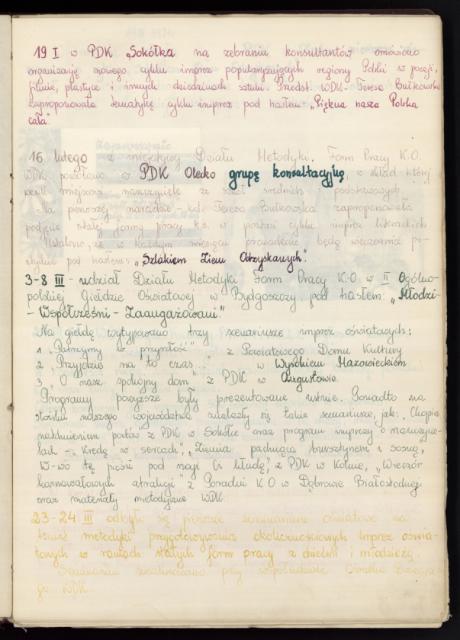 19 I w PDK Sokółka na zebraniu konsultantów omówiono
organizację nowego cyklu imprez popularyzujących regiony Polski w poezji,
filmie, plastyce i innych dziedzinach sztuki. Przedst. WDK - Teresa Butkowska
zaproponowała tematykę cyklu imprez pod hasłem „Piękna nasza Polska
cała"
16 lutego z inicjatywy Działu Metodyki Form Pracy K.O.
WDK powołano w PDK Olecko grupę konsultacyjną, w skład której
weszli nauczyciele ze szkół średnich i podstawowych
Na pierwszej naradzie kol. Teresa Butkowska zaproponowała
podjęcie stałej formy pracy k.o. w postaci cyklu imprez literackich
Ustalono, że w każdym miesiącu prowadzone będą wieczornice po-
etyckie pod hasłem: „Szlakiem Ziem Odzyskanych".
3-8 III - udział Działu Metodyki Form Pracy K.O w II Ogólno-
polskiej Giełdzie Oświatowej w Bydgoszczy pod hasłem: „Młodzi-
- Współcześni - Zaangażowani"
Na giełdę wytypowano trzy scenariusze imprez oświatowych:
1. „Patrzymy w przyszłość" z Powiatowego Domu Kultury
2 „Przyjdzie na to czas..." w Wysokiem Mazowieckiem
3. O nasz spokojny dom z PDK w Augustowie.
Programy powyższe były prezentowane ustnie. Ponadto na
stoisku naszego województwa znalazły się takie scenariusze, jak: Chopin
natchnieniem poetów z PDK w Sokółce oraz program imprezy o nauczycie-
lach - Kredą w sercach, „Ziemia pachnąca bursztynem i sosną",
„Wieczór
karnawałowych atrakcji" z Poradni K.O w Dąbrowie Białostockiej
oraz materiały metodyczne WDK.
23-24 III odbyło się pierwsze seminarium oświatowe na
temat metodyki przygotowywania okolicznościowych imprez oświa-
towych w ramach stałych form pracy z dziećmi i młodzieżą.
Seminarium zrealizowano przy współudziale
go WDK